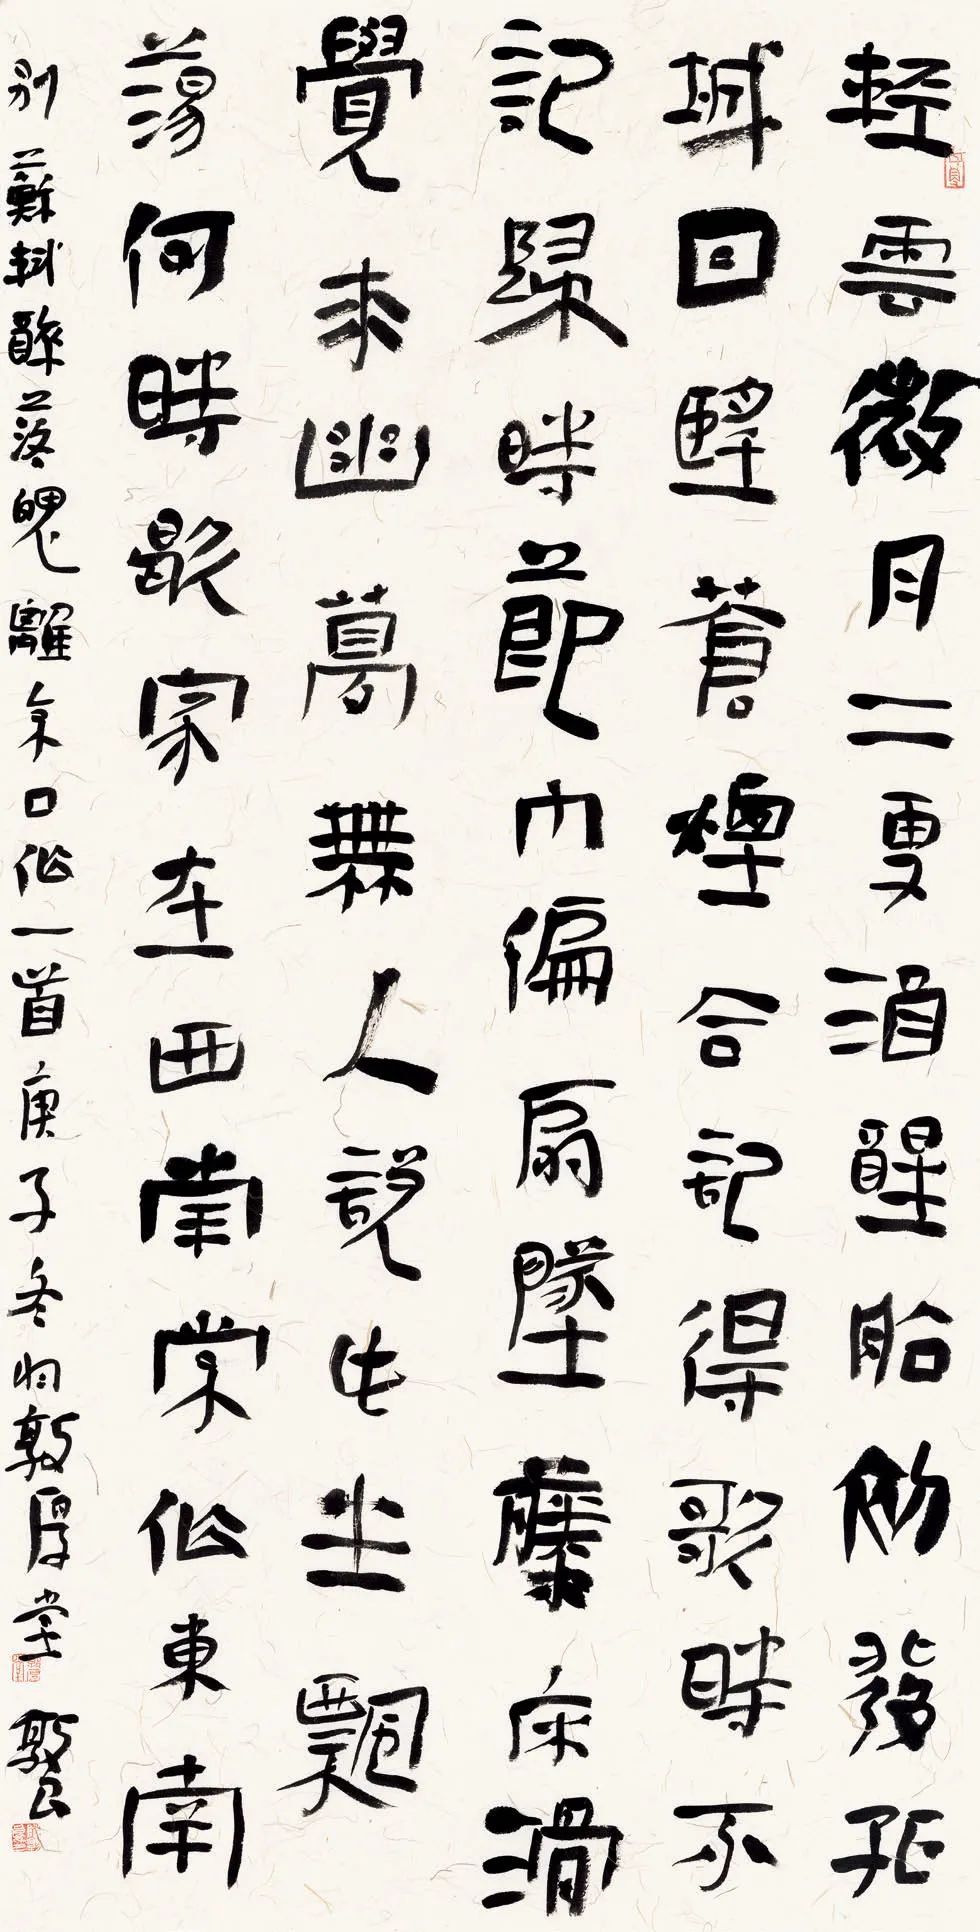 輕雲微月二更酒醒船初發孤
城回望蒼煙合記得歌時不
記歸時節巾偏扇墜藤床滑
覺來幽夢無人說此生飄
蕩何時歇家在西南常作東南
別 蘇軾醉落魄離京口作一首庚子冬敦厚堂